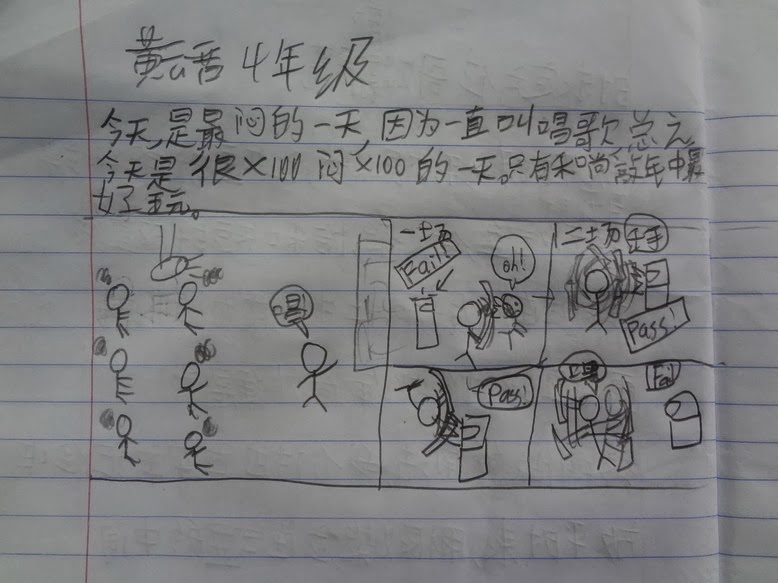 黄云香 4年级
今天,是最闷的一天,因为一直叫唱歌,总之,
今天是很×100闷×100的一天。只有和尚敲年中最
好玩。
唱!
一土场
Fail!
oh!
二土场
Pass!
Pass!
Fail